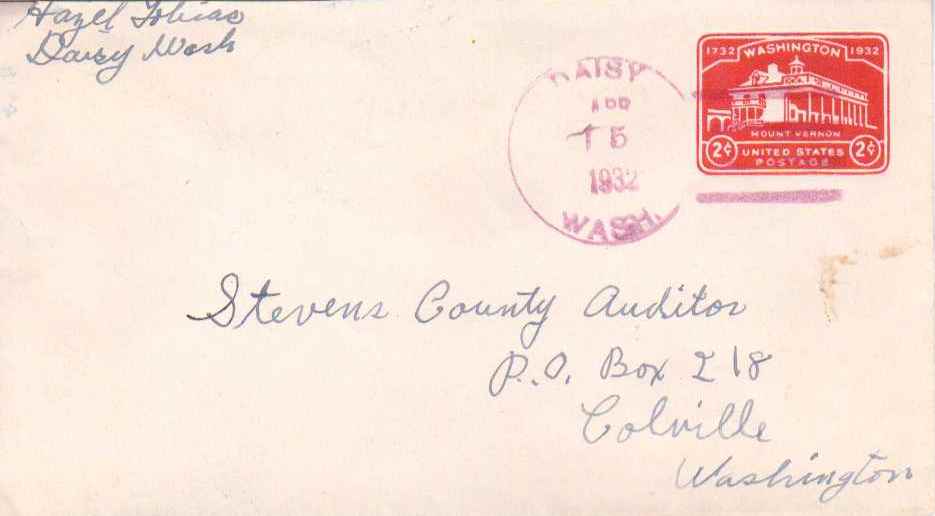 Hazel Tobias
Daisy Wash
DAISY
APR
15
1932
WASH.
1732 WASHINGTON 1932
MOUNT VERNON
2¢ UNITED STATES 2¢
POSTAGE
Stevens County Auditor
P.O. Box 218
Colville
Washington